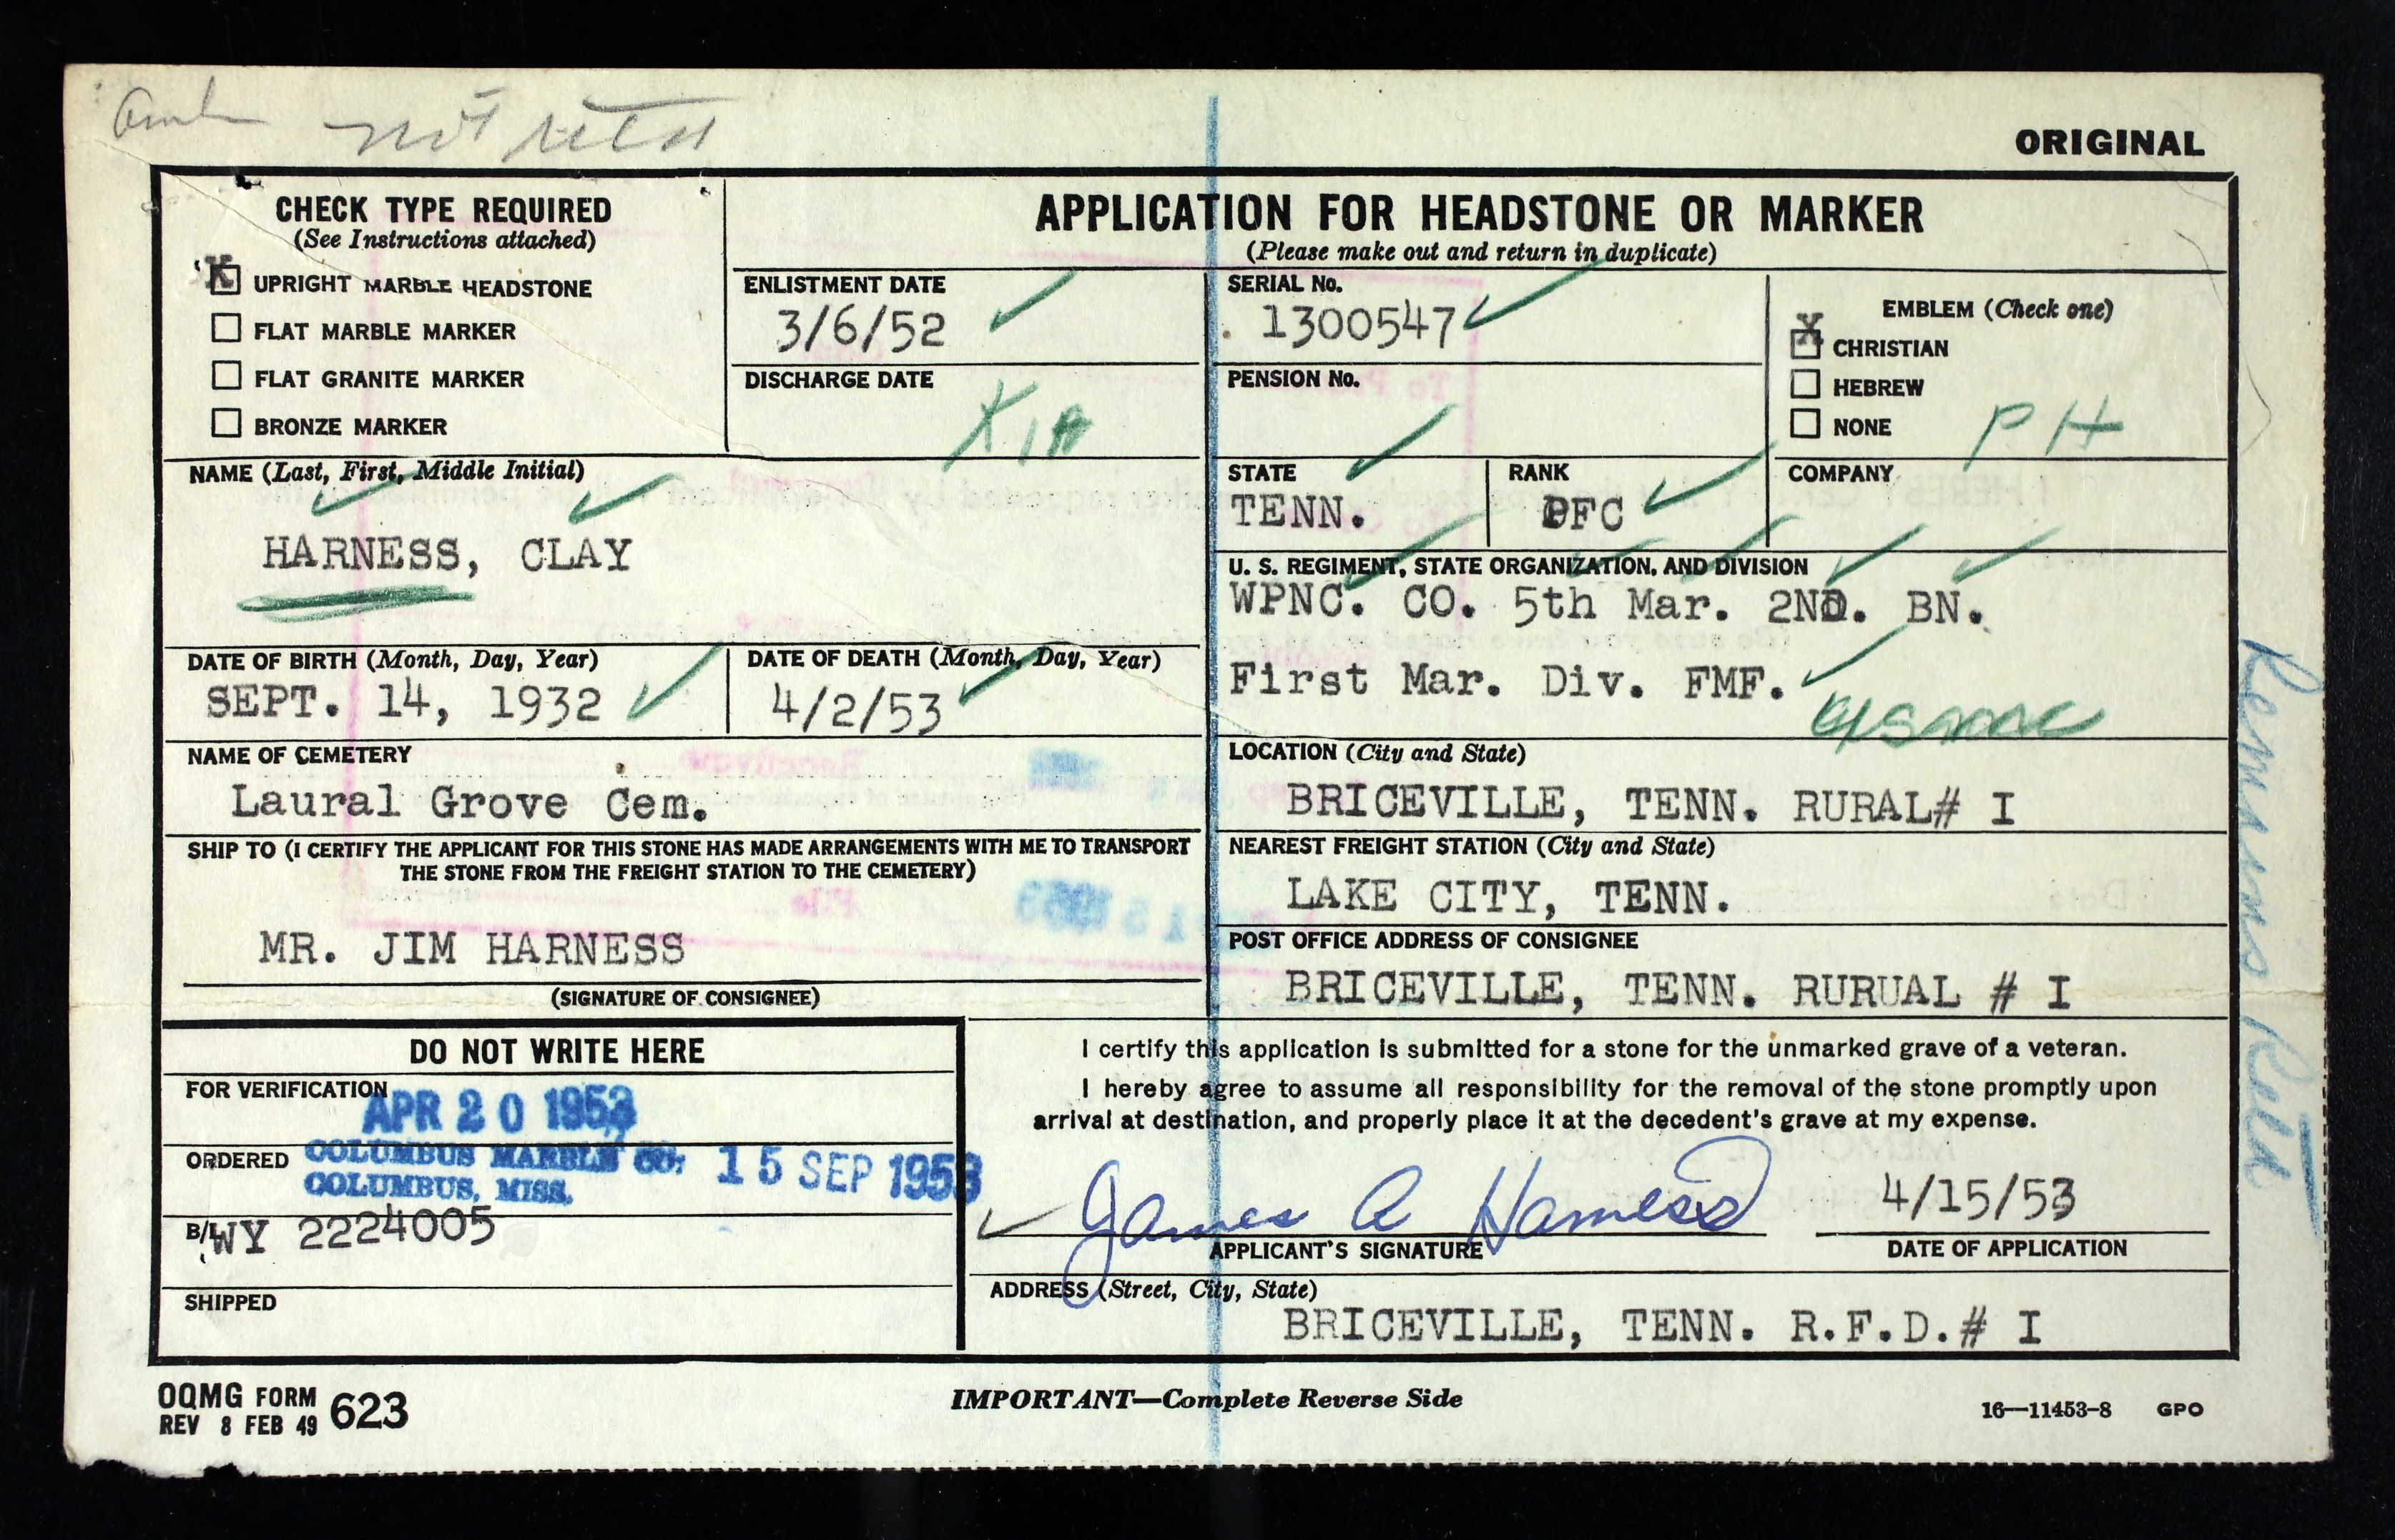 not retd
ORIGINAL
CHECK TYPE REQUIRED
(See Instructions attached)
X UPRIGHT MARBLE HEADSTONE
FLAT MARBLE MARKER
FLAT GRANITE MARKER
BRONZE MARKER
APPLICATION FOR HEADSTONE OR MARKER
(Please make out and return in duplicate)
ENLISTMENT DATE
3/6/52
DISCHARGE DATE
KIA
SERIAL No.
1300547
PENSION No.
EMBLEM (Check one)
X CHRISTIAN
HEBREW
NONE
PH
NAME (Last, First, Middle Initial)
HARNESS, CLAY
STATE
TENN.
RANK
PFC
COMPANY
U. S. REGIMENT, STATE ORGANIZATION, AND DIVISION
WPNC. CO. 5th Mar. 2ND. BN.
First Mar. Div. FMF.
USMC
DATE OF BIRTH (Month, Day, Year)
SEPT. 14, 1932
DATE OF DEATH (Month, Day, Year)
4/2/53
NAME OF CEMETERY
Laural Grove Cem.
LOCATION (City and State)
BRICEVILLE, TENN. RURAL# I
SHIP TO (I CERTIFY THE APPLICANT FOR THIS STONE HAS MADE ARRANGEMENTS WITH ME TO TRANSPORT
THE STONE FROM THE FREIGHT STATION TO THE CEMETERY)
MR. JIM HARNESS
(SIGNATURE OF CONSIGNEE)
NEAREST FREIGHT STATION (City and State)
LAKE CITY, TENN.
POST OFFICE ADDRESS OF CONSIGNEE
BRICEVILLE, TENN. RURUAL # I
DO NOT WRITE HERE
FOR VERIFICATION
APR 20 1953
ORDERED COLUMBUS MARBLE CO. 15 SEP 1953
COLUMBUS, MISS.
B/L WY 2224005
SHIPPED
I certify this application is submitted for a stone for the unmarked grave of a veteran.
I hereby agree to assume all responsibility for the removal of the stone promptly upon
arrival at destination, and properly place it at the decedent's grave at my expense.
James A Harness
APPLICANT'S SIGNATURE
4/15/53
DATE OF APPLICATION
ADDRESS (Street, City, State)
BRICEVILLE, TENN. R.F.D.# I
Remains Retd
OQMG FORM 623
REV 8 FEB 49
IMPORTANT—Complete Reverse Side
16—11453-8 GPO